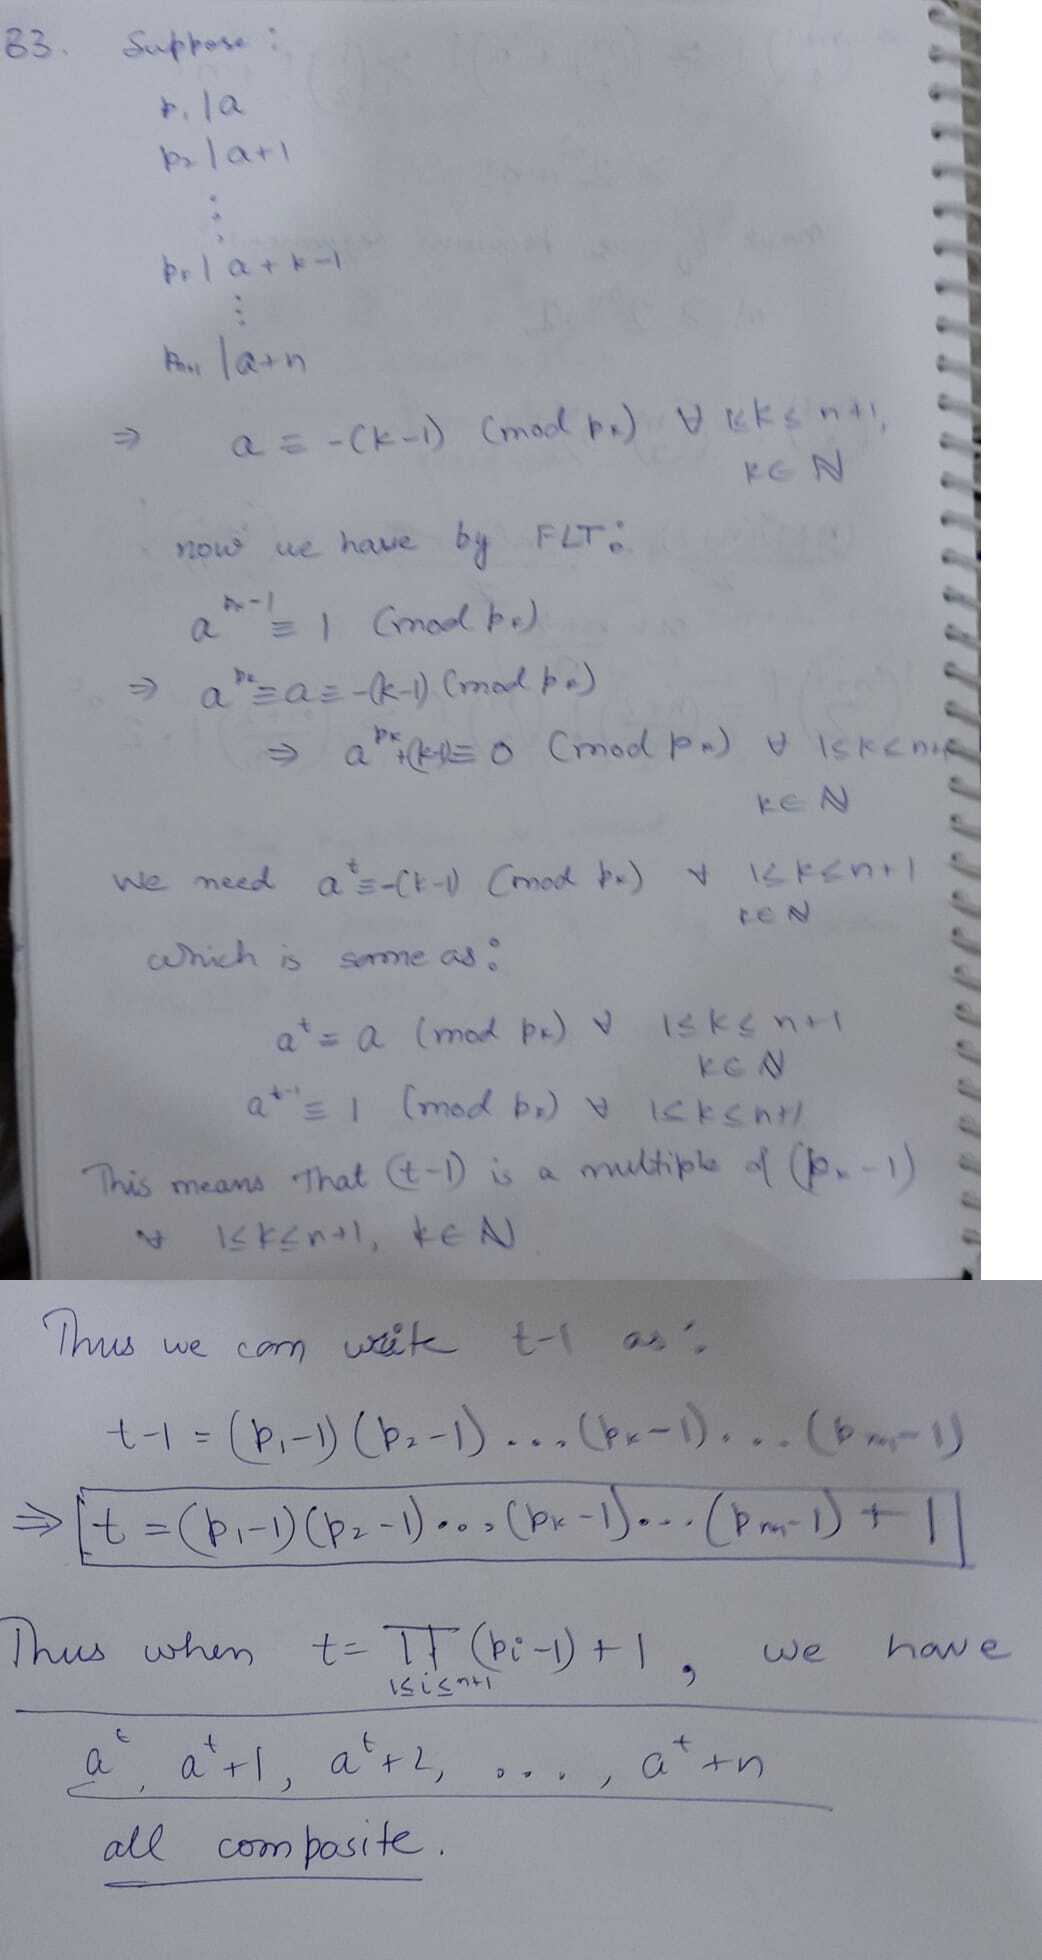 B3. Suppose :
p₁ | a
p₂ | a+1
⋮
pₖ | a+k-1
⋮
pₙ₊₁ | a+n
⇒ a ≡ -(k-1) (mod pₖ) ∀ 1≤k≤n+1,
k∈ℕ
now we have by FLT:
a^(pₖ-1) ≡ 1 (mod pₖ)
⇒ a^(pₖ) ≡ a ≡ -(k-1) (mod pₖ)
⇒ a^(pₖ)+(k-1) ≡ 0 (mod pₖ) ∀ 1≤k≤n+1
k∈ℕ
we need a^t ≡ -(k-1) (mod pₖ) ∀ 1≤k≤n+1
k∈ℕ
which is same as:
a^t ≡ a (mod pₖ) ∀ 1≤k≤n+1
k∈ℕ
a^(t-1) ≡ 1 (mod pₖ) ∀ 1≤k≤n+1
This means that (t-1) is a multiple of (pₖ-1)
∀ 1≤k≤n+1, k∈ℕ
Thus we can write t-1 as:
t-1 = (p₁-1)(p₂-1)...(pₖ-1)...(pₙ₊₁-1)
⇒ t = (p₁-1)(p₂-1)...(pₖ-1)...(pₙ₊₁-1) + 1
Thus when t = ∏ (pᵢ-1)+1, we have
1≤i≤n+1
a^t, a^t+1, a^t+2, ..., a^t+n
all composite.